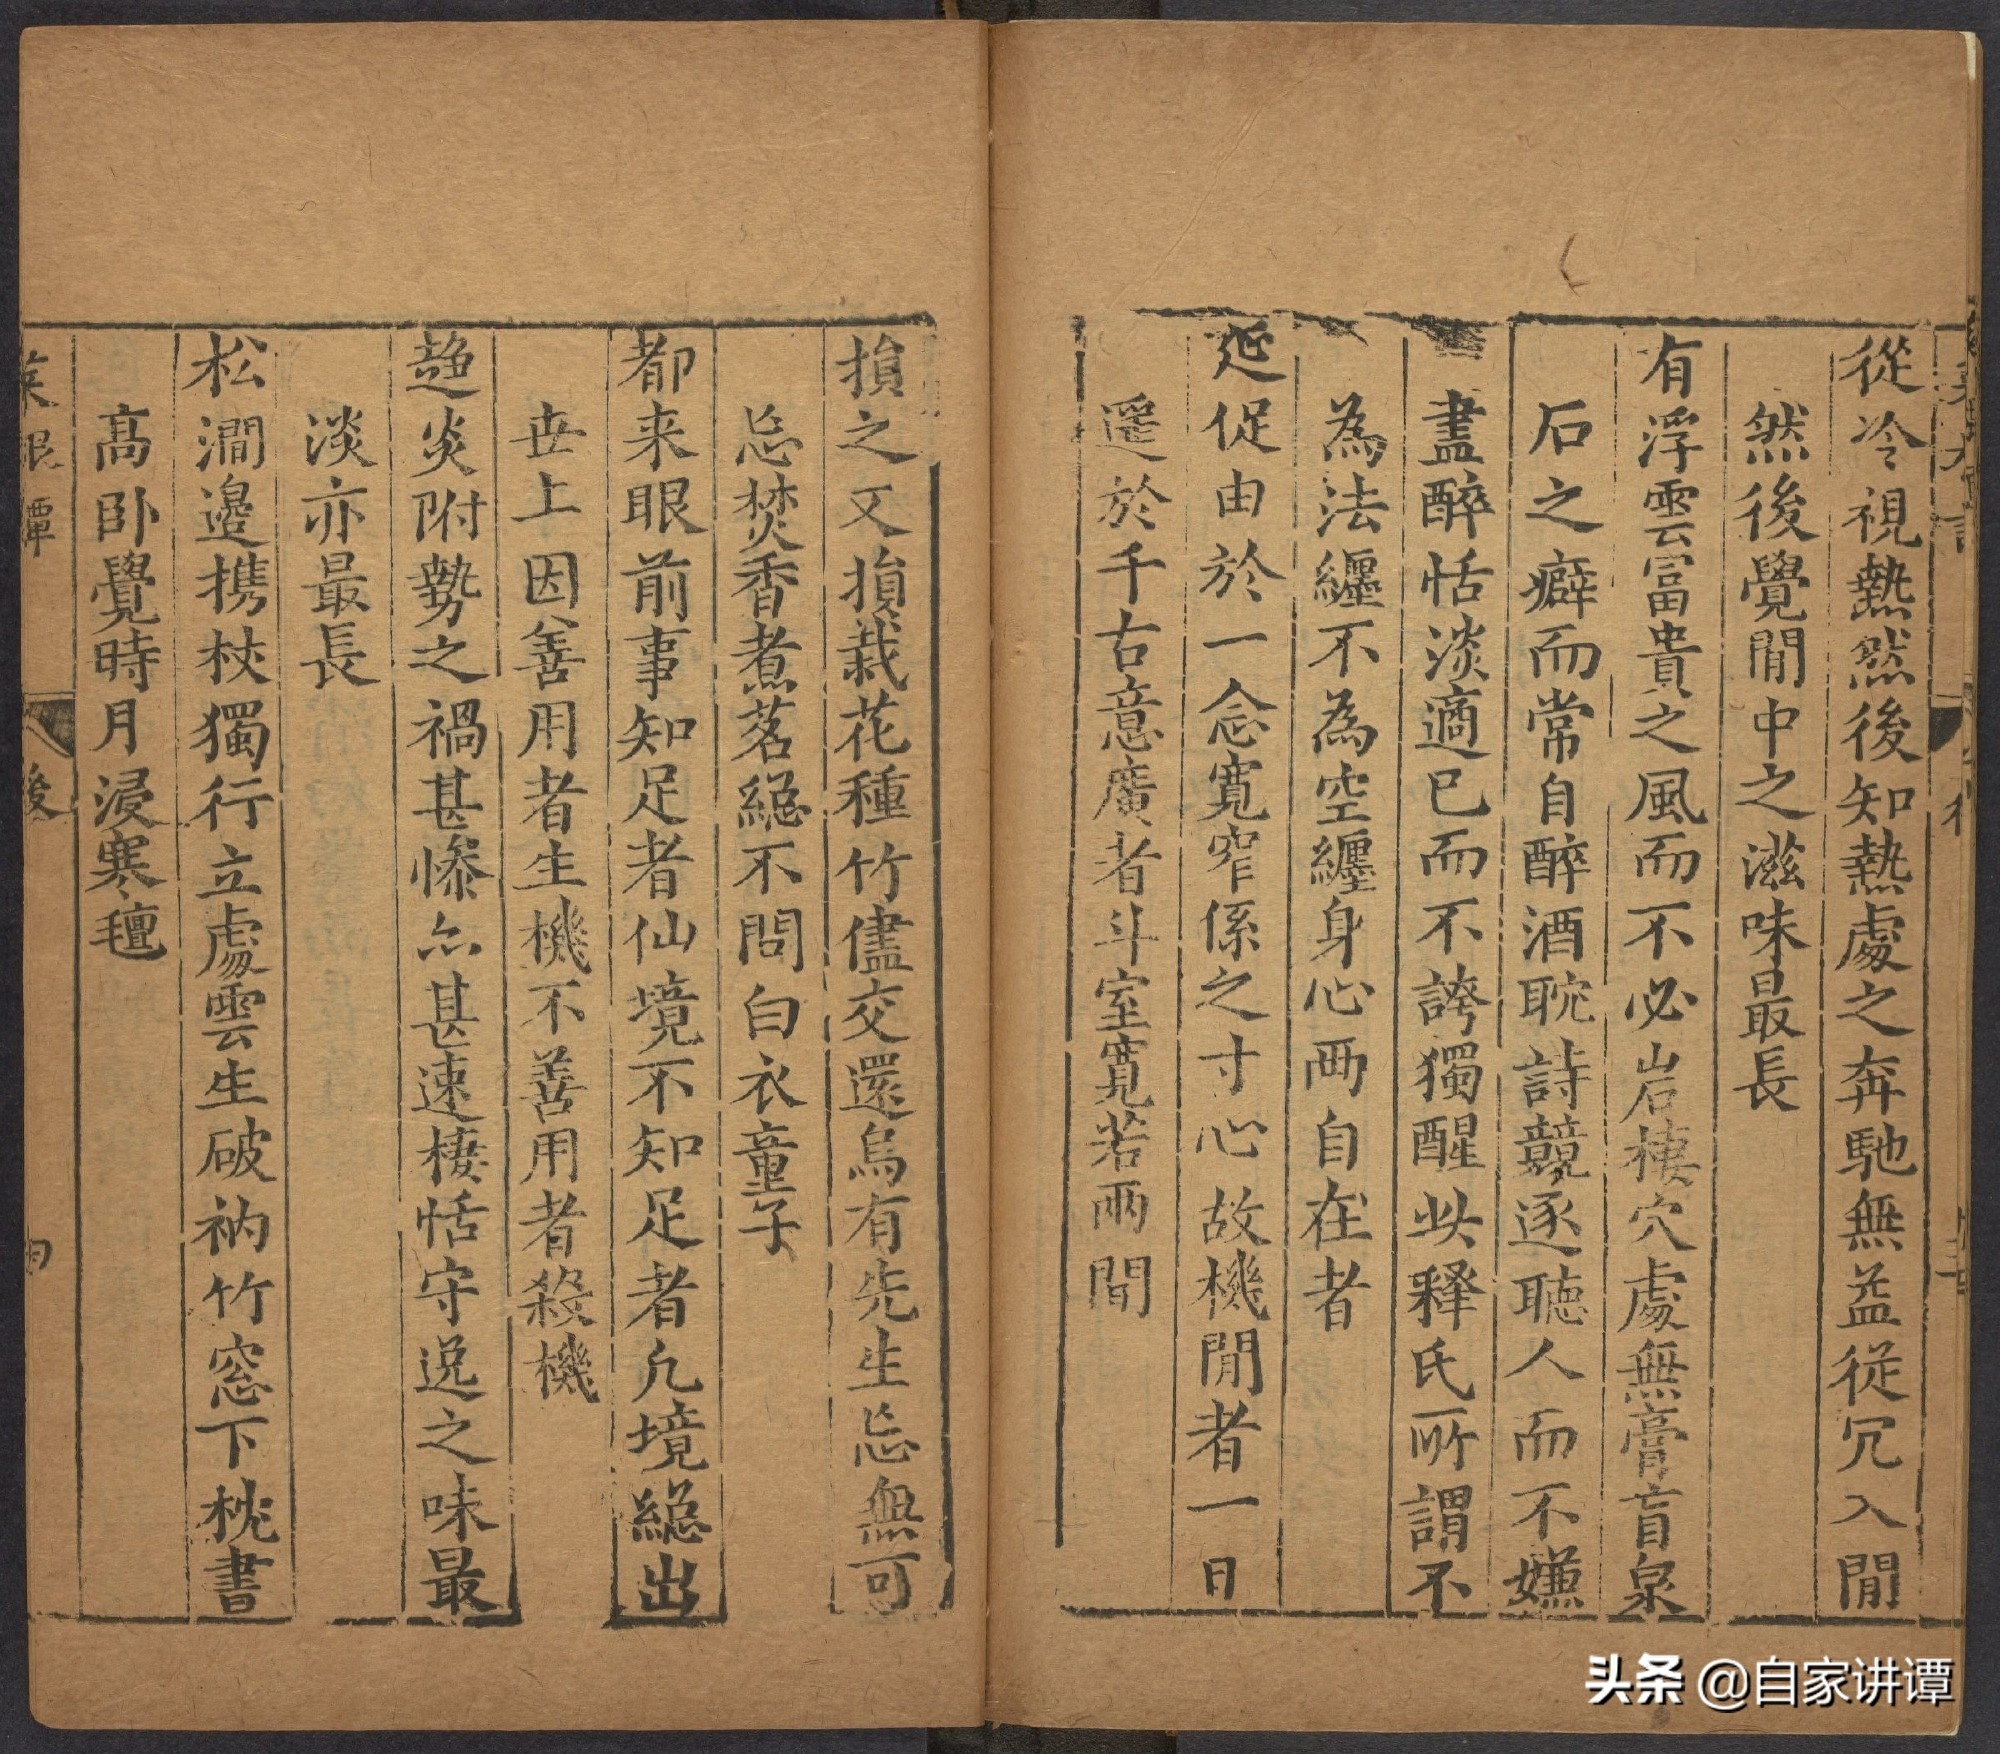 從冷視熱然後知熱處之奔馳無益從冗入閒
然後覺閒中之滋味最長
有浮雲富貴之風而不必岩棲穴處無膏肓泉
石之癖而常自醉酒耽詩競逐聽人而不嫌
盡醉恬淡適己而不誇獨醒此釋氏所謂不
為法纏不為空纏身心兩自在者
延促由於一念寬窄係之寸心故機閒者一日
遥於千古意廣者斗室寬若兩間
損之又損栽花種竹儘交還烏有先生忘無可
忘焚香煮茗總不問白衣童子
都来眼前事知足者仙境不知足者凡境總出
世上因善用者生機不善用者殺機
趨炎附勢之禍甚慘亦甚速棲恬守逸之味最
淡亦最長
松澗邊携杖獨行立處雲生破衲竹窓下枕書
高卧覺時月浸寒氊
菜根譚
後
头条 @自家讲谭